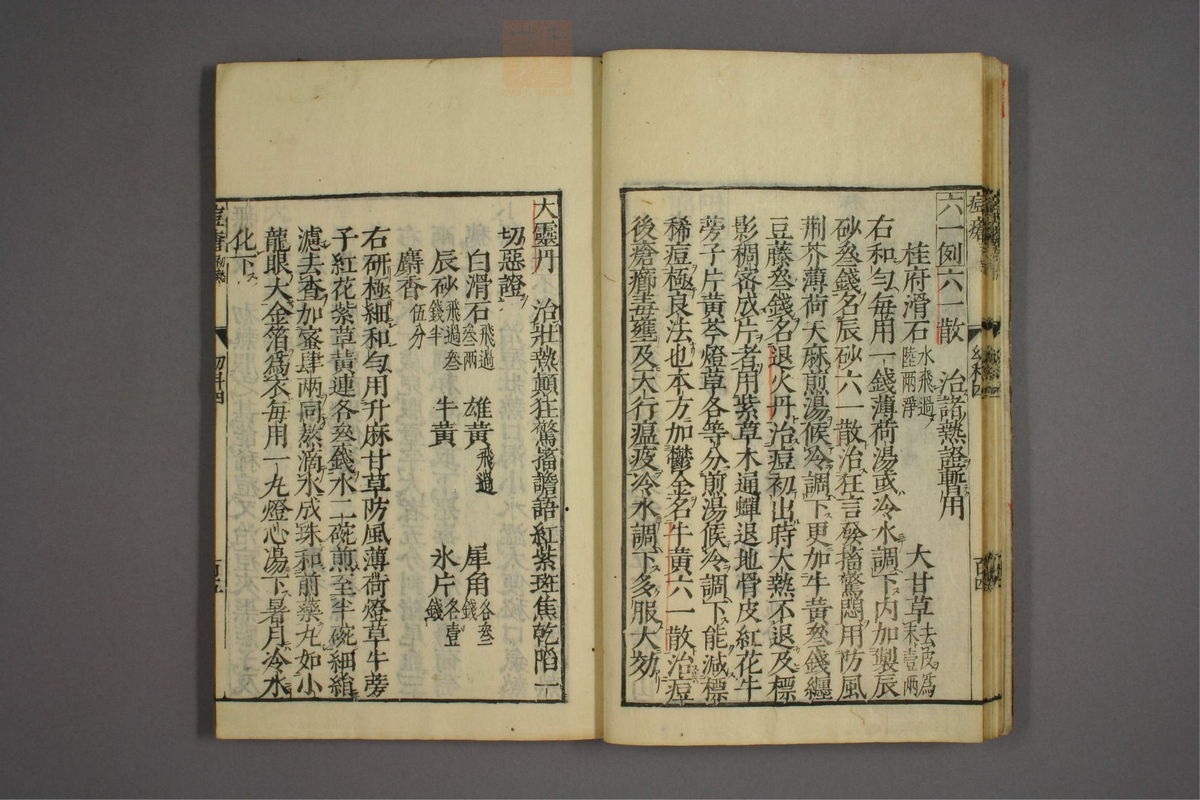 六一例六一散　治諸熱證暫用
桂府滑石水飛過陸兩淨　大甘草去皮為末壹兩
右和勻每用一錢薄荷湯或冷水調下內加製辰
砂叄錢名辰砂六一散治狂言發搐驚悶用防風
荆芥薄荷天麻煎湯候冷調下更加牛黃叄錢纏
豆藤叄錢名退火丹治痘初出時大熱不退及標
影稠密成片者用紫草木通蟬退地骨皮紅花牛
蒡子片黃芩燈草各等分煎湯候冷調下能減標
稀痘極良法也本方加鬱金名牛黃六一散治痘
後瘡癤毒壅及天行瘟疫冷水調下多服大効
大靈丹　治壯熱顛狂驚搐譫語紅紫斑焦乾陷一
切惡證
白滑石飛過叄兩　雄黃飛過　犀角各叄錢
辰砂飛過叄錢半　牛黃　氷片各壹錢
麝香伍分
右研極細和勻用升麻甘草防風薄荷燈草牛蒡
子紅花紫草黃連各叄錢水二碗煎至半碗細絹
濾去查加蜜肆兩同熬滴水成珠和前藥丸如小
龍眼大金箔為衣每用一丸燈心湯下暑月冷水
化下